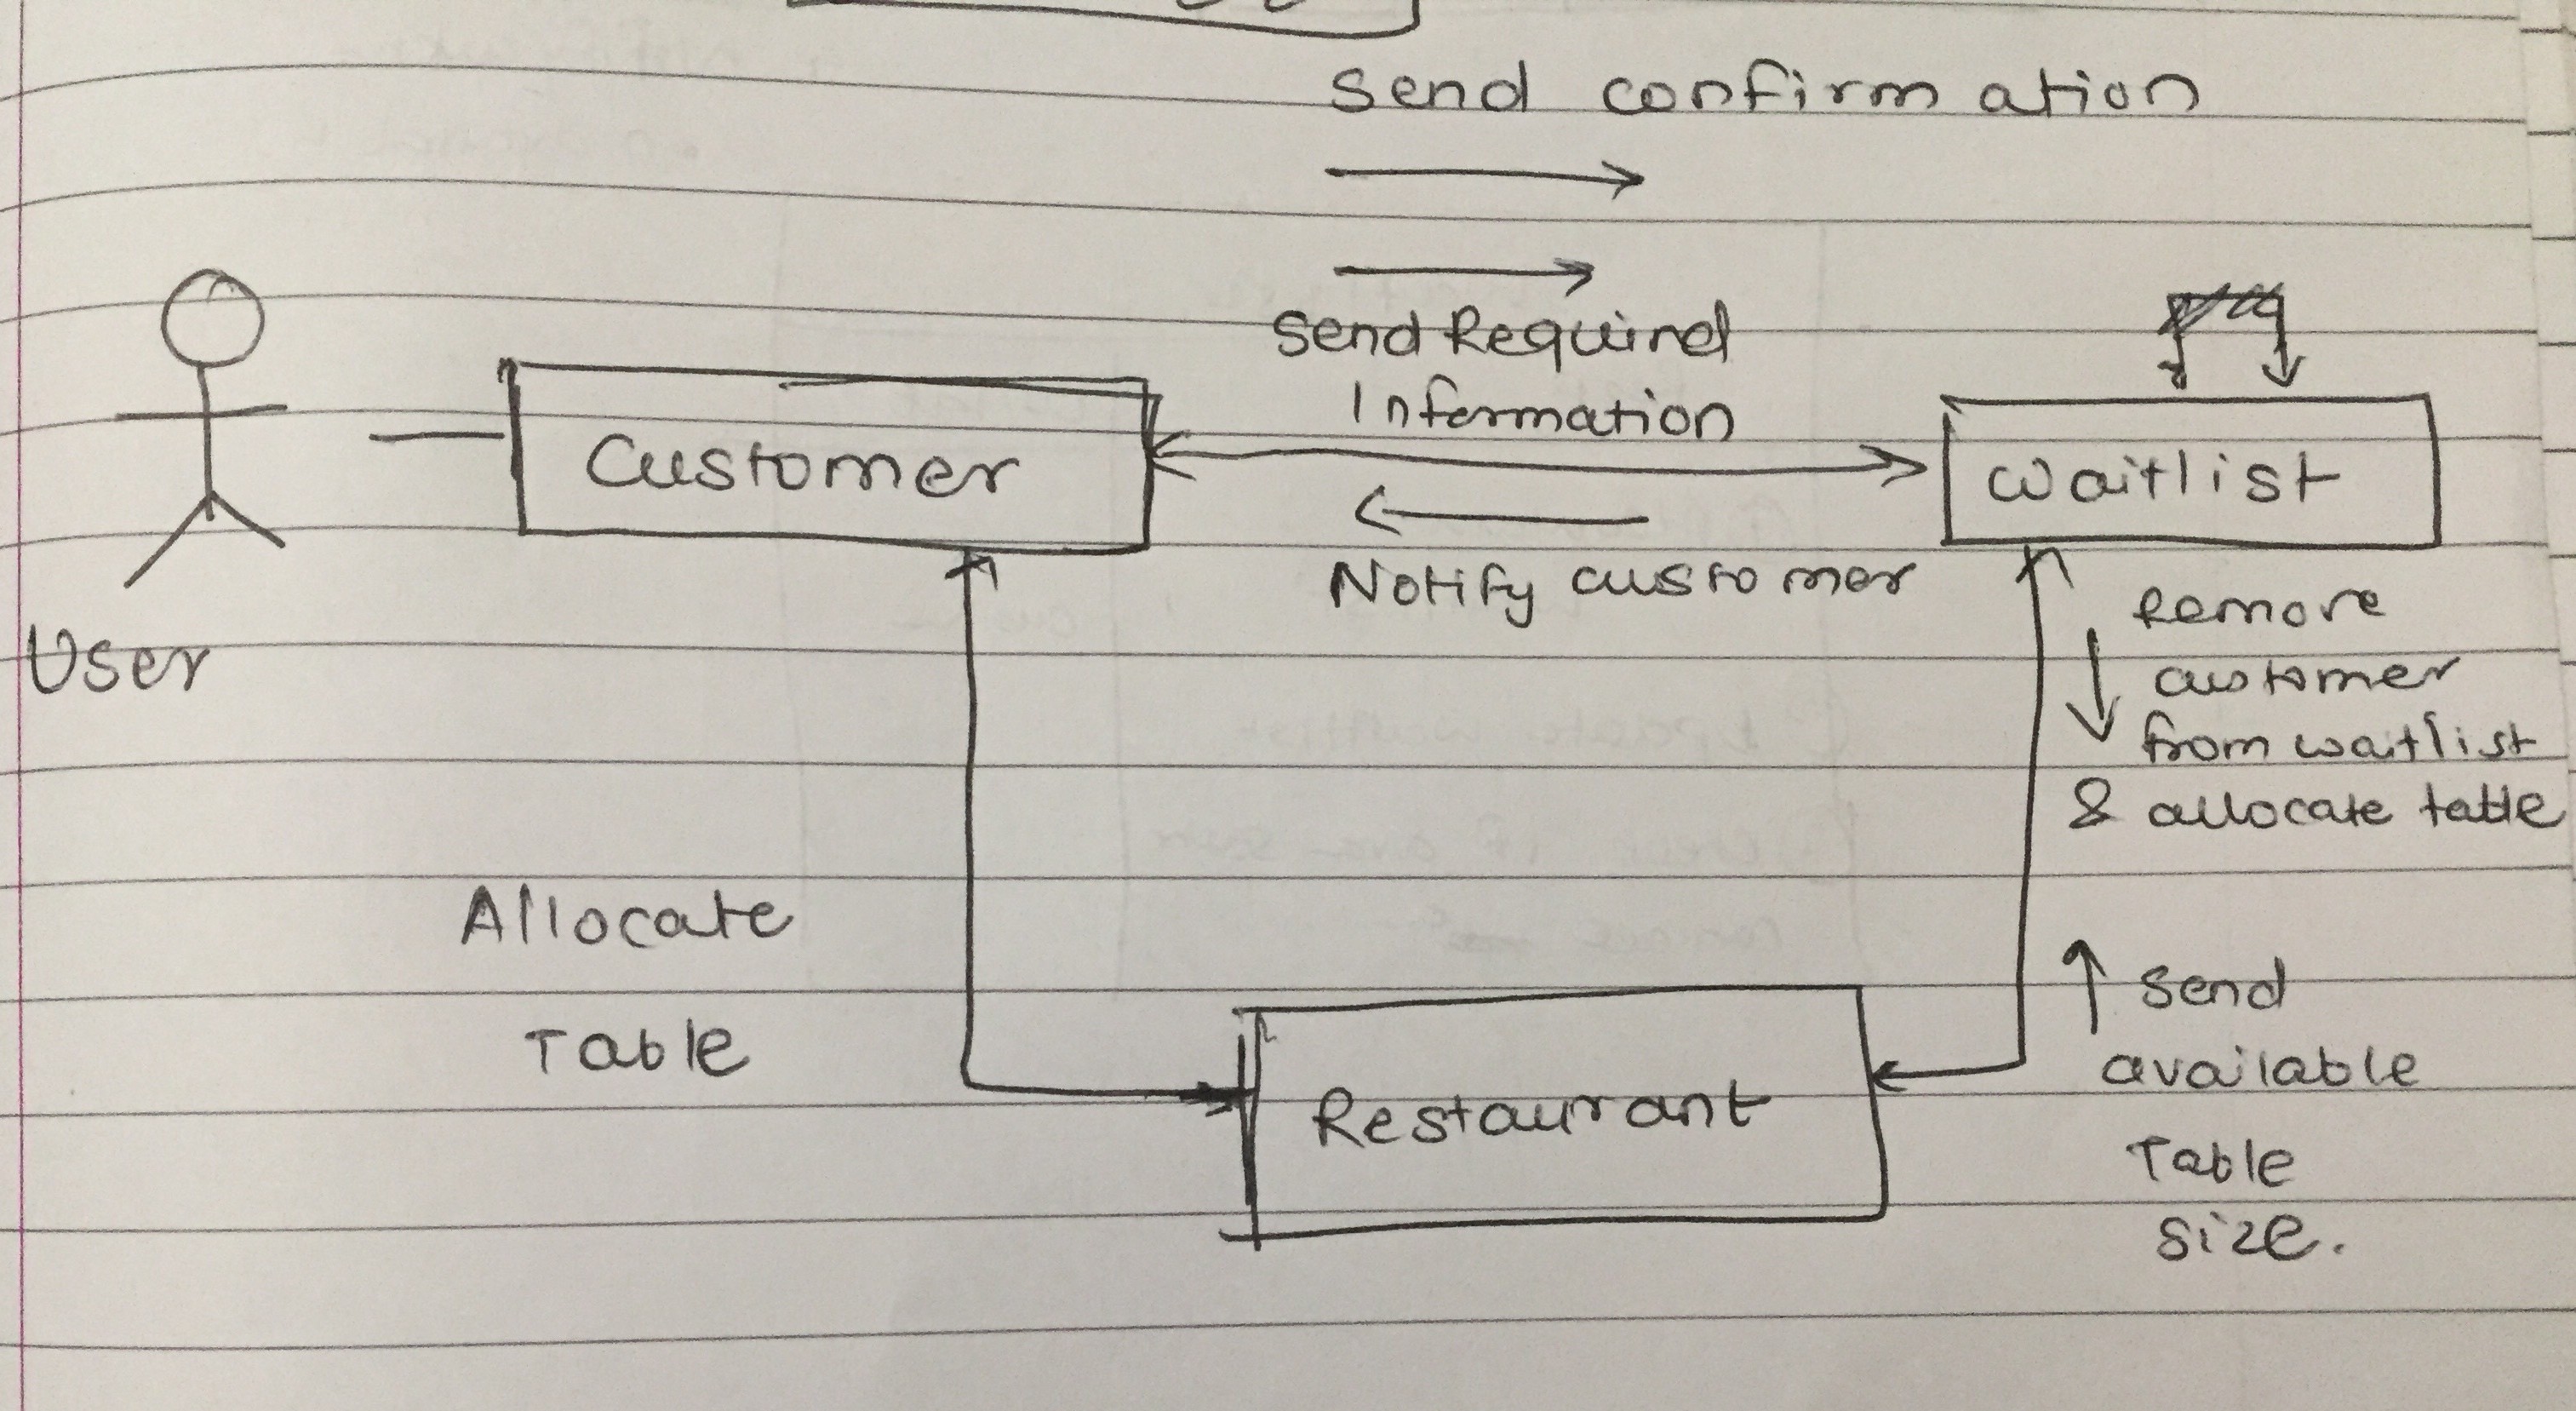 Send confirmation
Send Required
Information
Customer
Waitlist
Notify customer
User
Remove
customer
from waitlist
& allocate table
Allocate
Table
Send
available
Table
size.
Restaurant